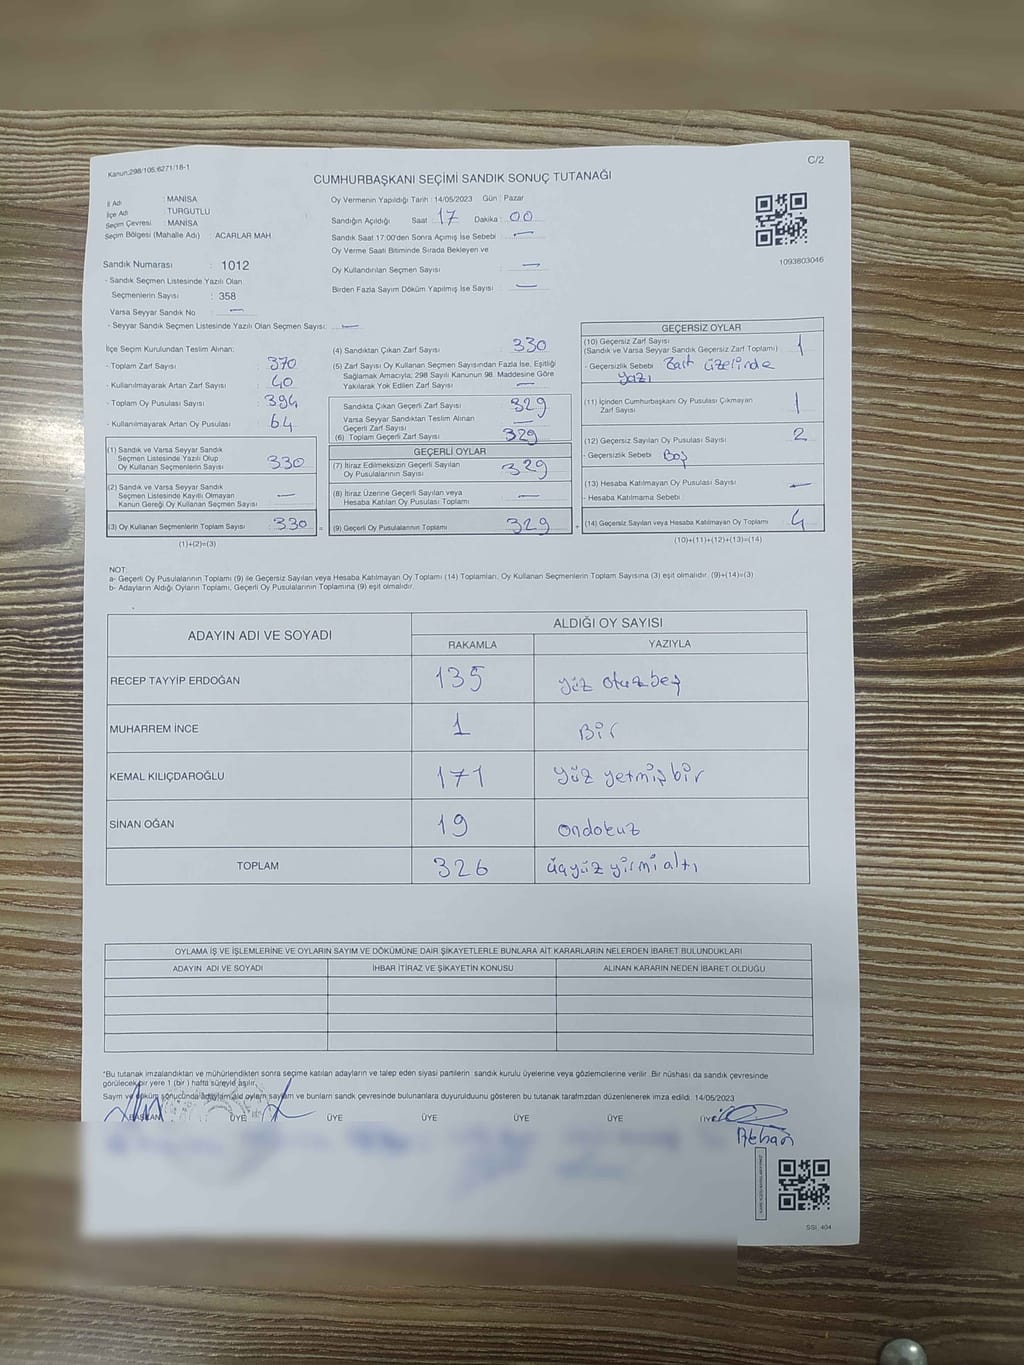 Kanun:298/105;6271/18-1
C/2
CUMHURBAŞKANI SEÇİMİ SANDIK SONUÇ TUTANAĞI
İl Adı : MANİSA
İlçe Adı : TURGUTLU
Seçim Çevresi : MANİSA
Seçim Bölgesi (Mahalle Adı) : ACARLAR MAH.
Sandık Numarası : 1012
- Sandık Seçmen Listesinde Yazılı Olan
Seçmenlerin Sayısı : 358
Varsa Seyyar Sandık No : —
- Seyyar Sandık Seçmen Listesinde Yazılı Olan Seçmen Sayısı: —
Oy Vermenin Yapıldığı Tarih : 14/05/2023 Gün : Pazar
Sandığın Açıldığı Saat : 17 Dakika : 00
Sandık Saat 17:00'den Sonra Açımış İse Sebebi : —
Oy Verme Saati Bitiminde Sırada Bekleyen ve
Oy Kullandırılan Seçmen Sayısı : —
Birden Fazla Sayım Döküm Yapılmış İse Sayısı : —
1093803046
İlçe Seçim Kurulundan Teslim Alınan:
- Toplam Zarf Sayısı : 370
- Kullanılmayarak Artan Zarf Sayısı : 40
- Toplam Oy Pusulası Sayısı : 394
- Kullanılmayarak Artan Oy Pusulası : 64
(1) Sandık ve Varsa Seyyar Sandık
Seçmen Listesinde Yazılı Olup
Oy Kullanan Seçmenlerin Sayısı : 330
(2) Sandık ve Varsa Seyyar Sandık
Seçmen Listesinde Kayıtlı Olmayan
Kanun Gereği Oy Kullanan Seçmen Sayısı : —
(3) Oy Kullanan Seçmenlerin Toplam Sayısı : 330
(1)+(2)=(3)
(4) Sandıktan Çıkan Zarf Sayısı : 330
(5) Zarf Sayısı Oy Kullanan Seçmen Sayısından Fazla İse, Eşitliği
Sağlamak Amacıyla; 298 Sayılı Kanunun 98. Maddesine Göre
Yakılarak Yok Edilen Zarf Sayısı : —
Sandıkta Çıkan Geçerli Zarf Sayısı : 329
Varsa Seyyar Sandıktan Teslim Alınan
Geçerli Zarf Sayısı : —
(6) Toplam Geçerli Zarf Sayısı : 329
GEÇERLİ OYLAR
(7) İtiraz Edilmeksizin Geçerli Sayılan
Oy Pusulalarının Sayısı : 329
(8) İtiraz Üzerine Geçerli Sayılan veya
Hesaba Katılan Oy Pusulası Toplamı : —
= (9) Geçerli Oy Pusulalarının Toplamı : 329
GEÇERSİZ OYLAR
(10) Geçersiz Zarf Sayısı
(Sandık ve Varsa Seyyar Sandık Geçersiz Zarf Toplamı) : 1
- Geçersizlik Sebebi : Zarf üzerinde
yazı
(11) İçinden Cumhurbaşkanı Oy Pusulası Çıkmayan
Zarf Sayısı : 1
(12) Geçersiz Sayılan Oy Pusulası Sayısı : 2
- Geçersizlik Sebebi : Boş
(13) Hesaba Katılmayan Oy Pusulası Sayısı : —
- Hesaba Katılmama Sebebi :
+ (14) Geçersiz Sayılan veya Hesaba Katılmayan Oy Toplamı : 4
(10)+(11)+(12)+(13)=(14)
NOT:
a- Geçerli Oy Pusulalarının Toplamı (9) ile Geçersiz Sayılan veya Hesaba Katılmayan Oy Toplamı (14) Toplamları, Oy Kullanan Seçmenlerin Toplam Sayısına (3) eşit olmalıdır. (9)+(14)=(3)
b- Adayların Aldığı Oyların Toplamı, Geçerli Oy Pusulalarının Toplamına (9) eşit olmalıdır.
ADAYIN ADI VE SOYADI ALDIĞI OY SAYISI
RAKAMLA YAZIYLA
RECEP TAYYİP ERDOĞAN 135 yüz otuzbeş
MUHARREM İNCE 1 Bir
KEMAL KILIÇDAROĞLU 171 yüz yetmiş bir
SİNAN OĞAN 19 ondokuz
TOPLAM 326 üçyüz yirmi altı
OYLAMA İŞ VE İŞLEMLERİNE VE OYLARIN SAYIM VE DÖKÜMÜNE DAİR ŞİKAYETLERLE BUNLARA AİT KARARLARIN NELERDEN İBARET BULUNDUKLARI
ADAYIN ADI VE SOYADI İHBAR İTİRAZ VE ŞİKAYETİN KONUSU ALINAN KARARIN NEDEN İBARET OLDUĞU
*Bu tutanak imzalandıktan ve mühürlendikten sonra seçime katılan adayların ve talep eden siyasi partilerin sandık kurulu üyelerine veya gözlemcilerine verilir. Bir nüshası da sandık çevresinde
görülecek bir yere 1 (bir ) hafta süreyle asılır.
Sayım ve döküm sonucunda adayların aldığı oyların sayısını ve bunların sandık çevresinde bulunanlara duyurulduğunu gösteren bu tutanak tarafımızdan düzenlenerek imza edildi. 14/05/2023
BAŞKAN ÜYE ÜYE ÜYE ÜYE ÜYE ÜYE
SSİ_404